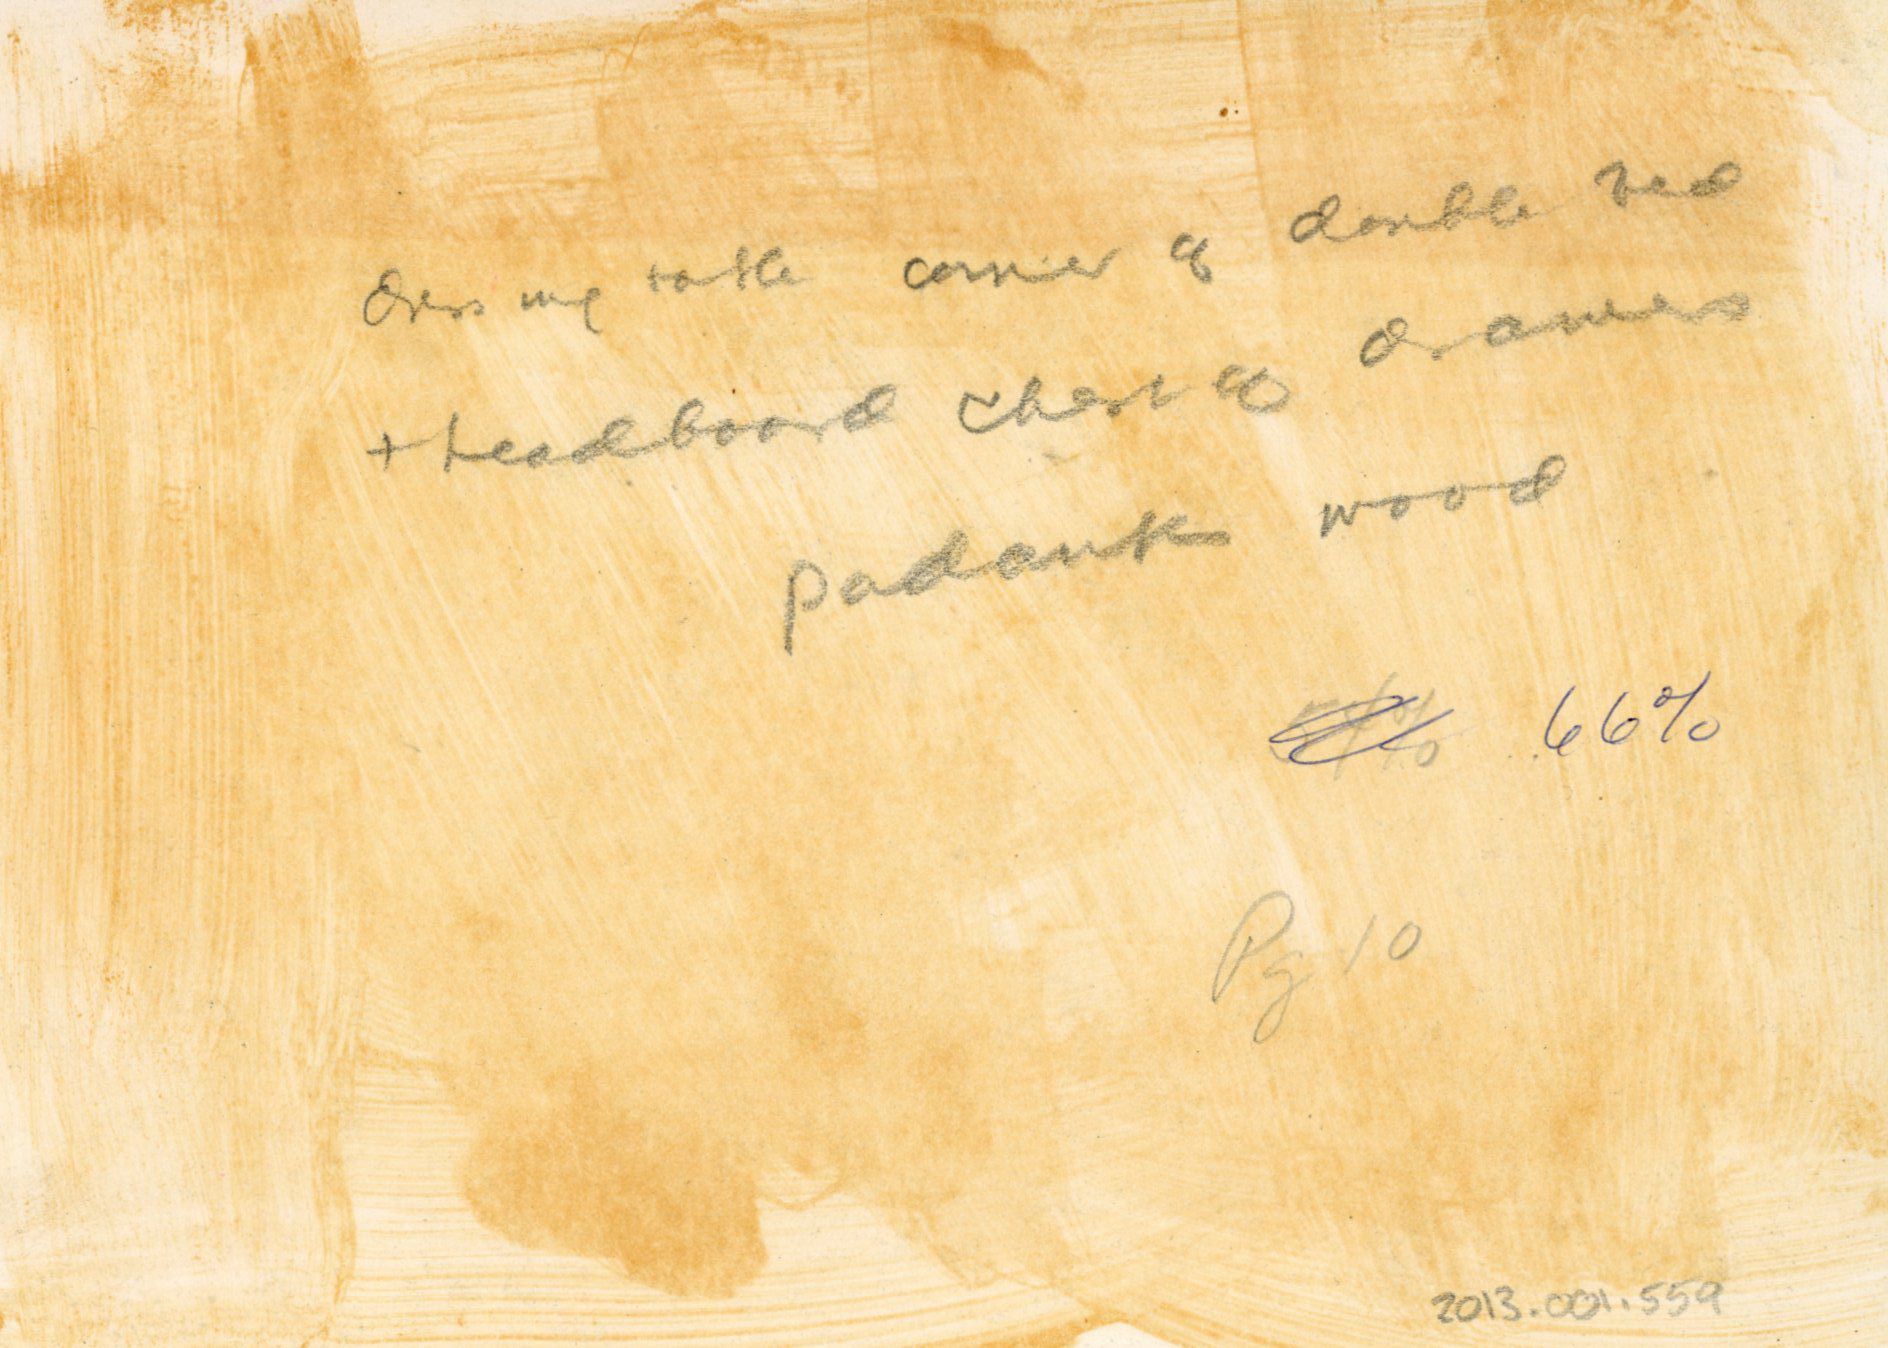 dressing table corner of double bed
+ headboard chest of drawers
padauk wood
66%
Pg 10
2013.001.559